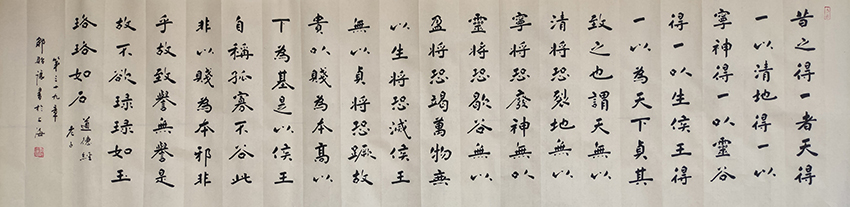 昔之得一者天得
一以清地得一以
寧神得一以靈谷
得一以生侯王得
一以為天下貞其
致之也謂天無以
清將恐裂地無以
寧將恐廢神無以
靈將恐歇谷無以
盈將恐竭萬物無
以生將恐滅侯王
無以貞將恐蹶故
貴以賤為本高以
下為基是以侯王
自稱孤寡不谷此
非以賤為本邪非
乎故致譽無譽是
故不欲琭琭如玉
珞珞如石 道德經
老子
第三十九章
書於上海